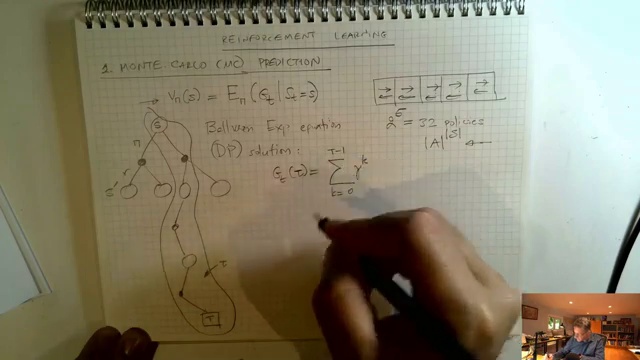 REINFORCEMENT LEARNING
1. MONTE CARLO (MC) PREDICTION
→ Vπ(s) = Eπ(Gt | St=s)
→ → → → →
← ← ← ← ←
Bellman Exp. equation
(DP) solution:
2^5 = 32 policies
|A|^|S| ←
Gt(τ) = Σ_{k=0}^{T-1} γ^k
S
π
r
s'
τ
T